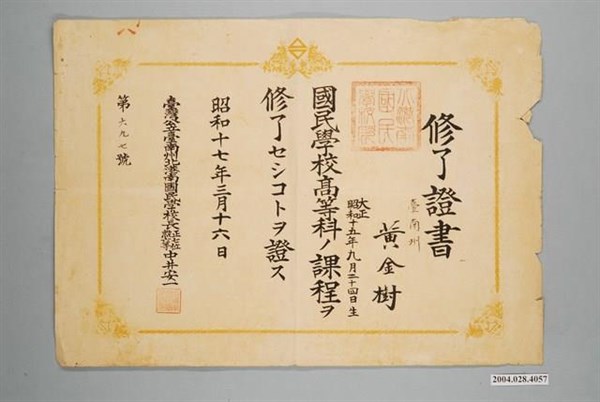 修了證書
臺南州
黃金樹
大正
昭和
十五年九月二十四日生
國民學校高等科ノ課程ヲ
修了セシコトヲ證ス
昭和十七年三月十六日
臺灣公立臺南州北港南國民學校長
中井安一
第六九七號
2004.028.4057